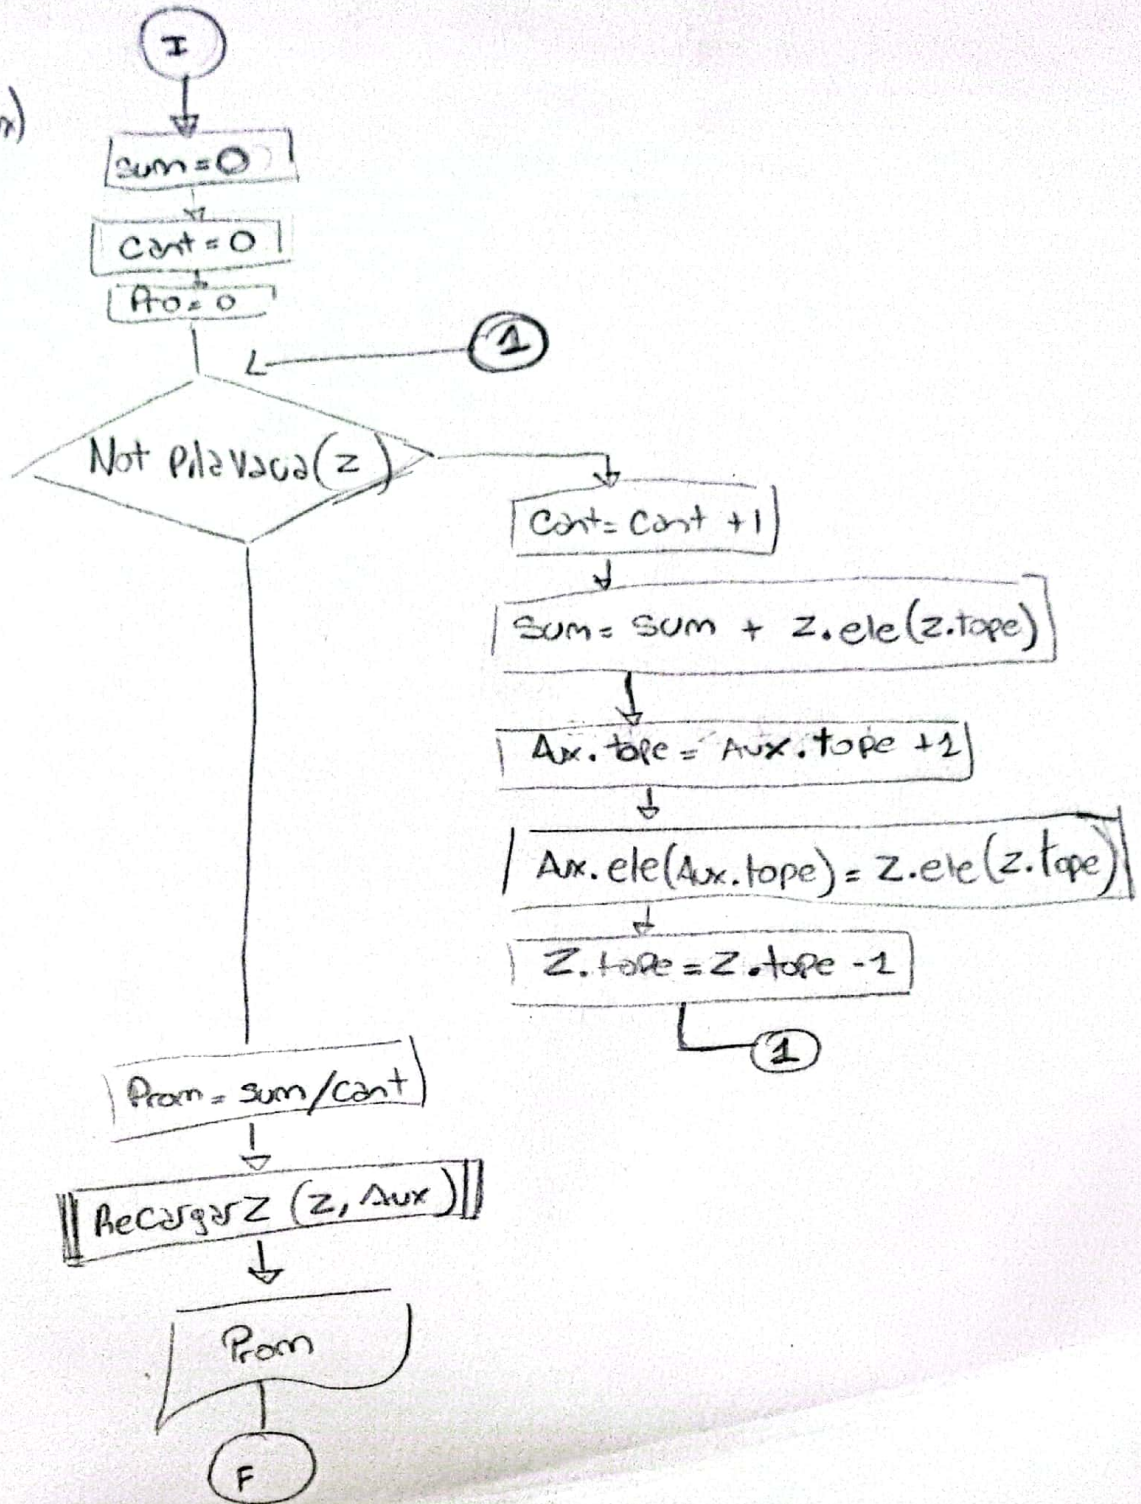 I
x)
sum=0
Cant=0
Pro=0
1
Not Pilavacia(z)
Cant=Cant+1
Sum= sum + z.ele(z.tope)
Aux.tope= Aux.tope +1
Aux.ele(Aux.tope)=z.ele(z.tope)
Z.tope=Z.tope-1
1
Prom=sum/cant
RecargarZ (z, Aux)
Prom
F